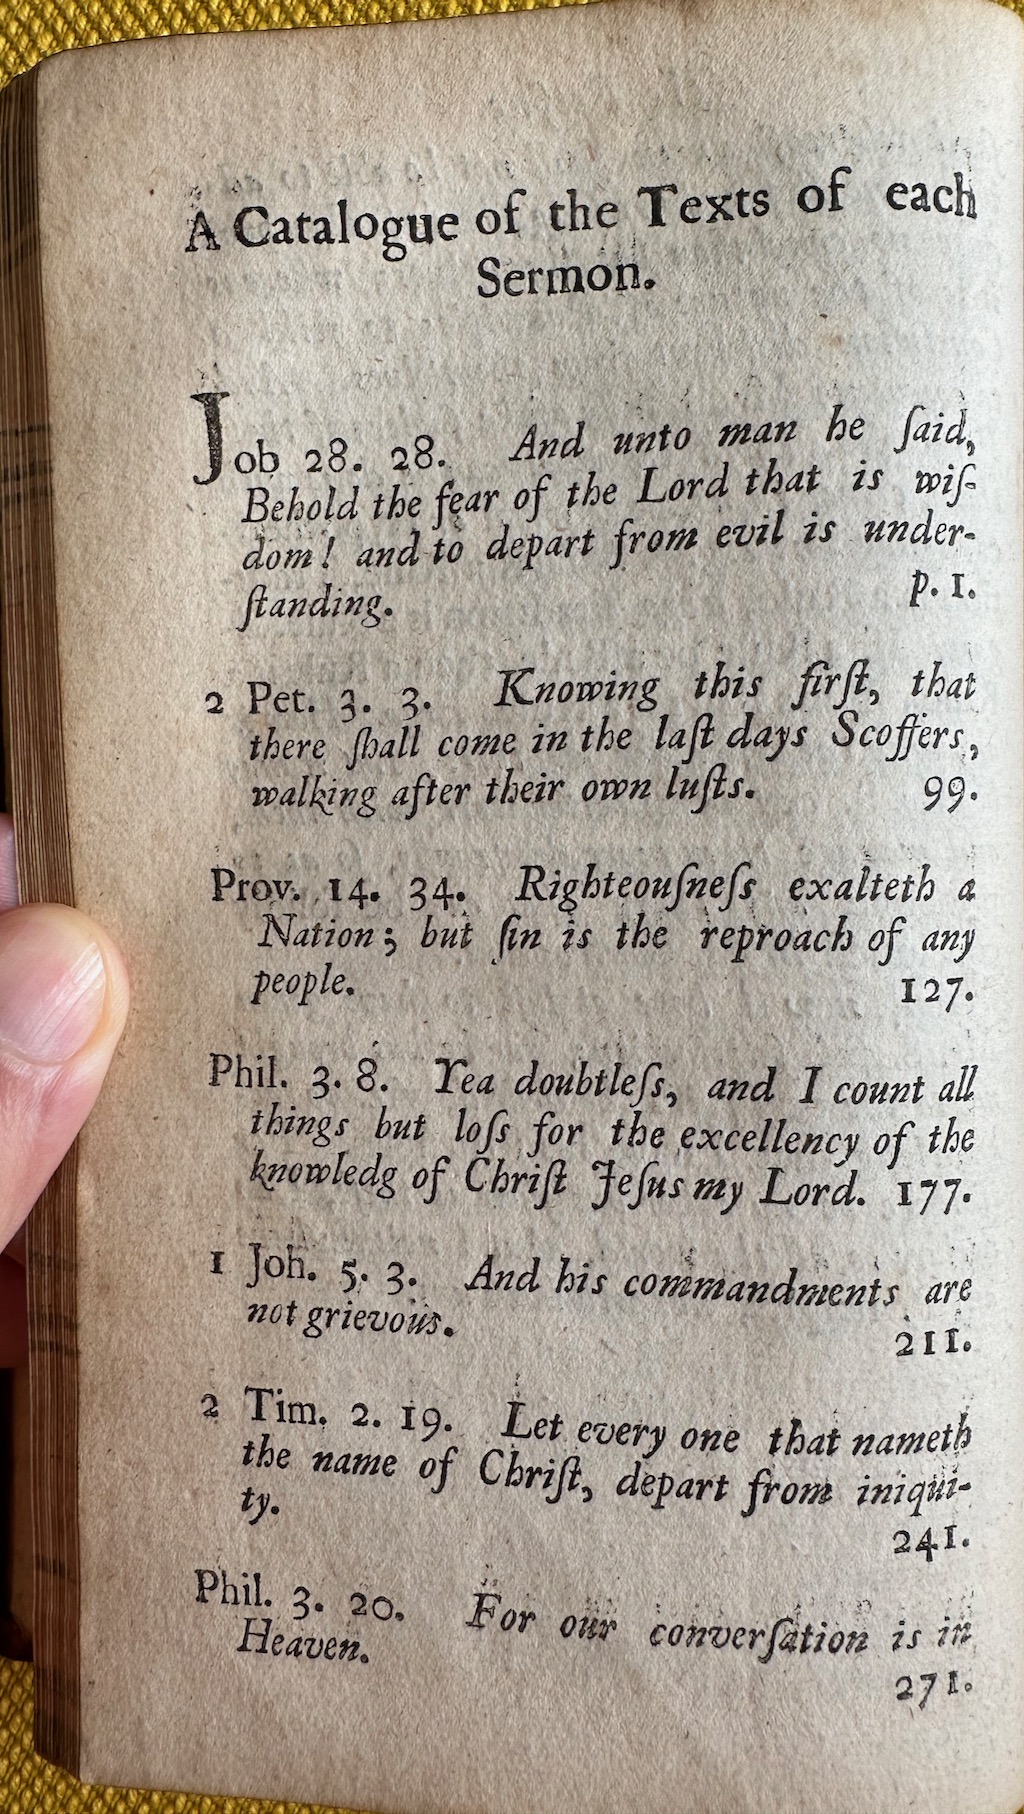 A Catalogue of the Texts of each
Sermon.
Job 28. 28. And unto man he ſaid,
Behold the fear of the Lord that is wiſ-
dom! and to depart from evil is under-
ſtanding. p. 1.
2 Pet. 3. 3. Knowing this firſt, that
there ſhall come in the laſt days Scoffers,
walking after their own luſts. 99.
Prov. 14. 34. Righteouſneſs exalteth a
Nation; but ſin is the reproach of any
people. 127.
Phil. 3. 8. Yea doubtleſs, and I count all
things but loſs for the excellency of the
knowledg of Chriſt Jeſus my Lord. 177.
1 Joh. 5. 3. And his commandments are
not grievous. 211.
2 Tim. 2. 19. Let every one that nameth
the name of Chriſt, depart from iniqui-
ty. 241.
Phil. 3. 20. For our converſation is in
Heaven. 271.